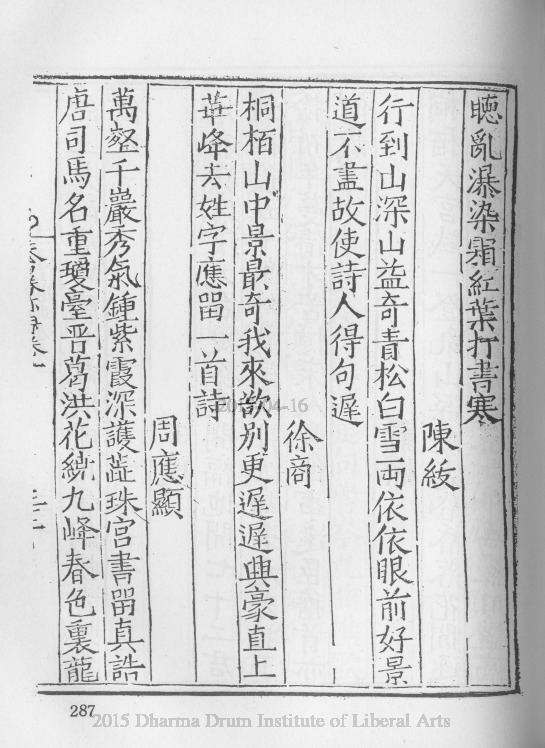 聴亂瀑染霜紅葉打書寒
陳紋
行到山深山益奇青松白雪両依依眼前好景
道不盡故使詩人得句遲
徐商
桐栢山中景最奇我來欲别更遲遲興豪直上
華峰去姓字應畱一首詩
周應顯
萬壑千巖秀氣鍾紫霞深護蘂珠宫書畱真誥
唐司馬名重瓊臺晋葛洪花繞九峰春色裏龍
2015-04-16
287
2015 Dharma Drum Institute of Liberal Arts